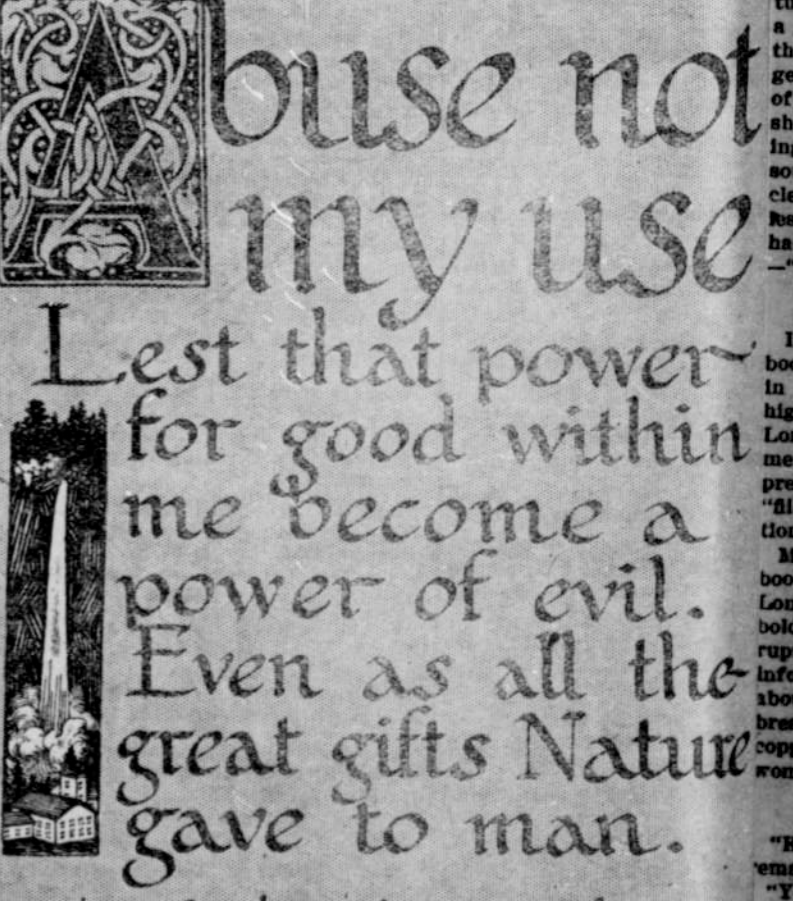 Abuse not
my use
Lest that power
for good within
me become a
power of evil.
Even as all the
great gifts Nature
gave to man.